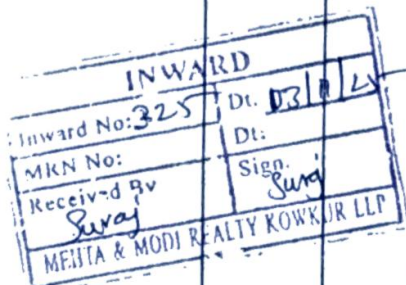 INWARD
Inward No: 325 Dt. 03/
MRN No: Dt:
Received By Sign.
Suraj Suraj
MEHTA & MODI REALTY KOWKUR LLP